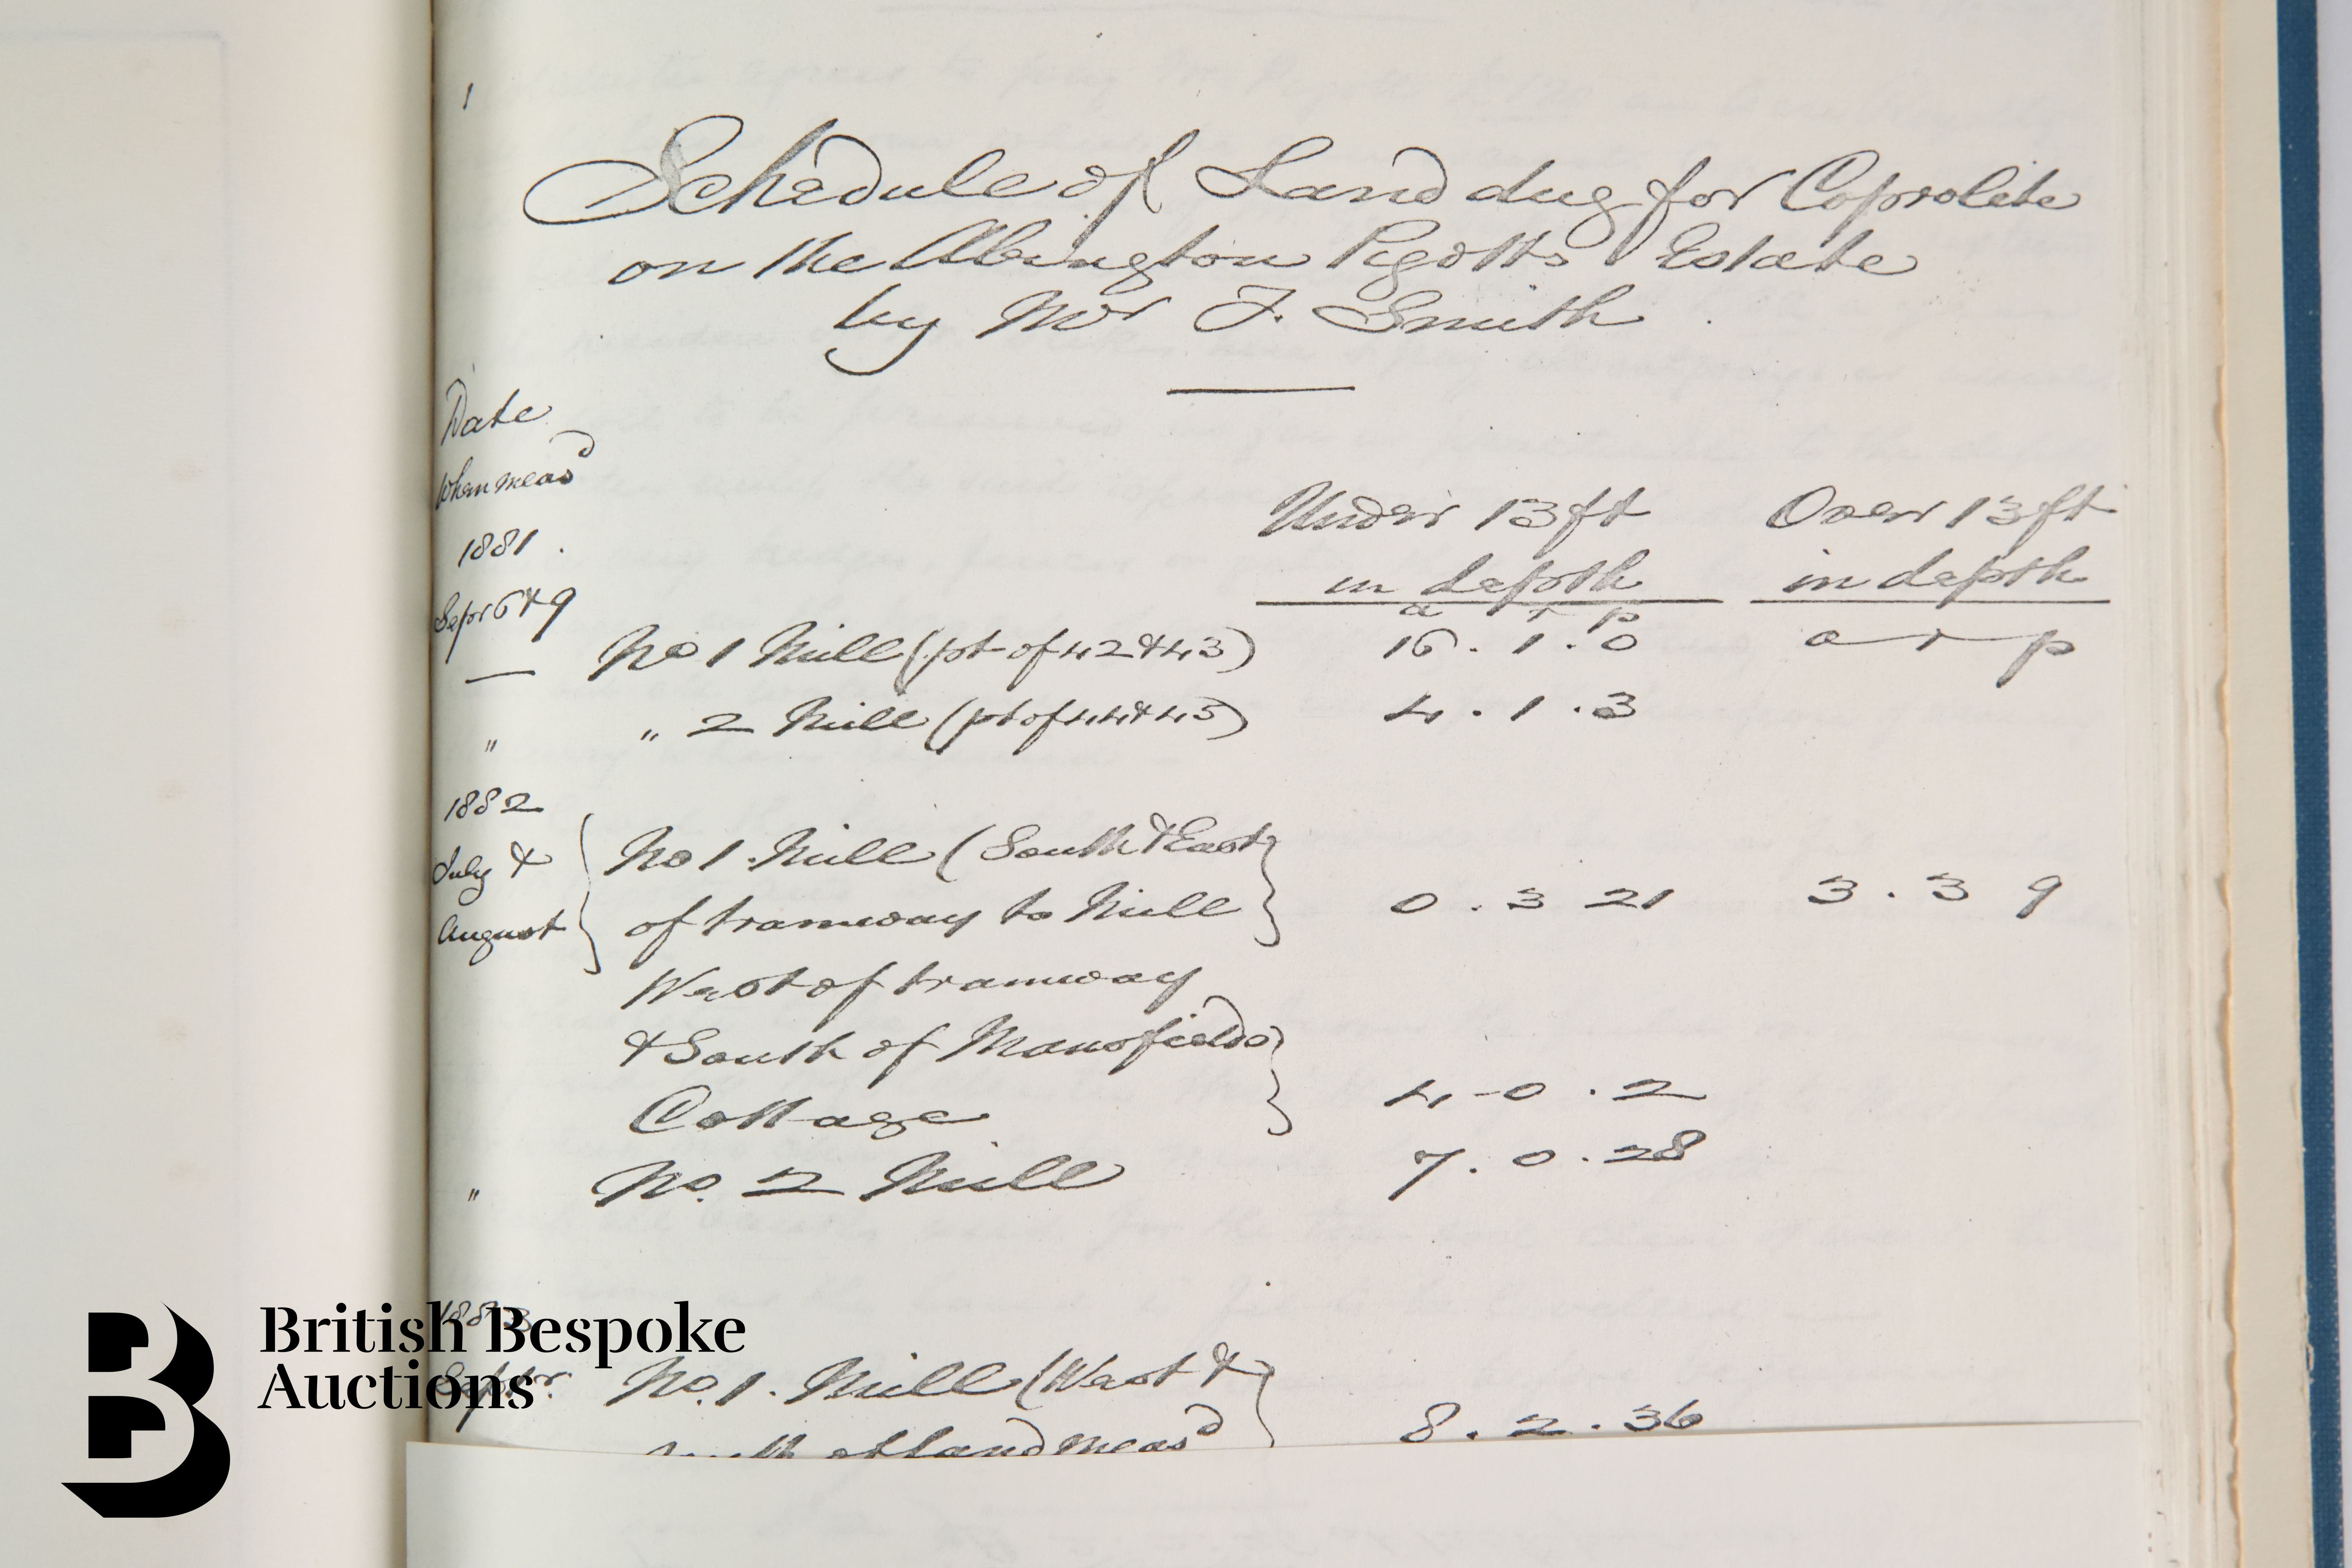 1
Schedule of Land dug for Coprolite
on the Abington Pigotts Estate
by Mr J. Smith
Date
when meas<sup>d</sup>
1881.
Under 13 ft Over 13 ft
in depth in depth
Sepr 6 & 9
a r p
No 1 Mill (pt of 42 & 43) 16. 1. 0 a r p
" " 2 Mill (pt of 44 & 45) 4. 1. 3
1882
July & No 1. Mill (South & East
August of tramway to Mill 0. 3 21 3. 3 9
West of tramway
& South of Mansfields
Cottage 4-0. 2
" No. 2 Mill 7. 0. 28
1883
Septr. No. 1. Mill (West &
of land meas<sup>d</sup> 8. 2. 36
British Bespoke
Auctions
B